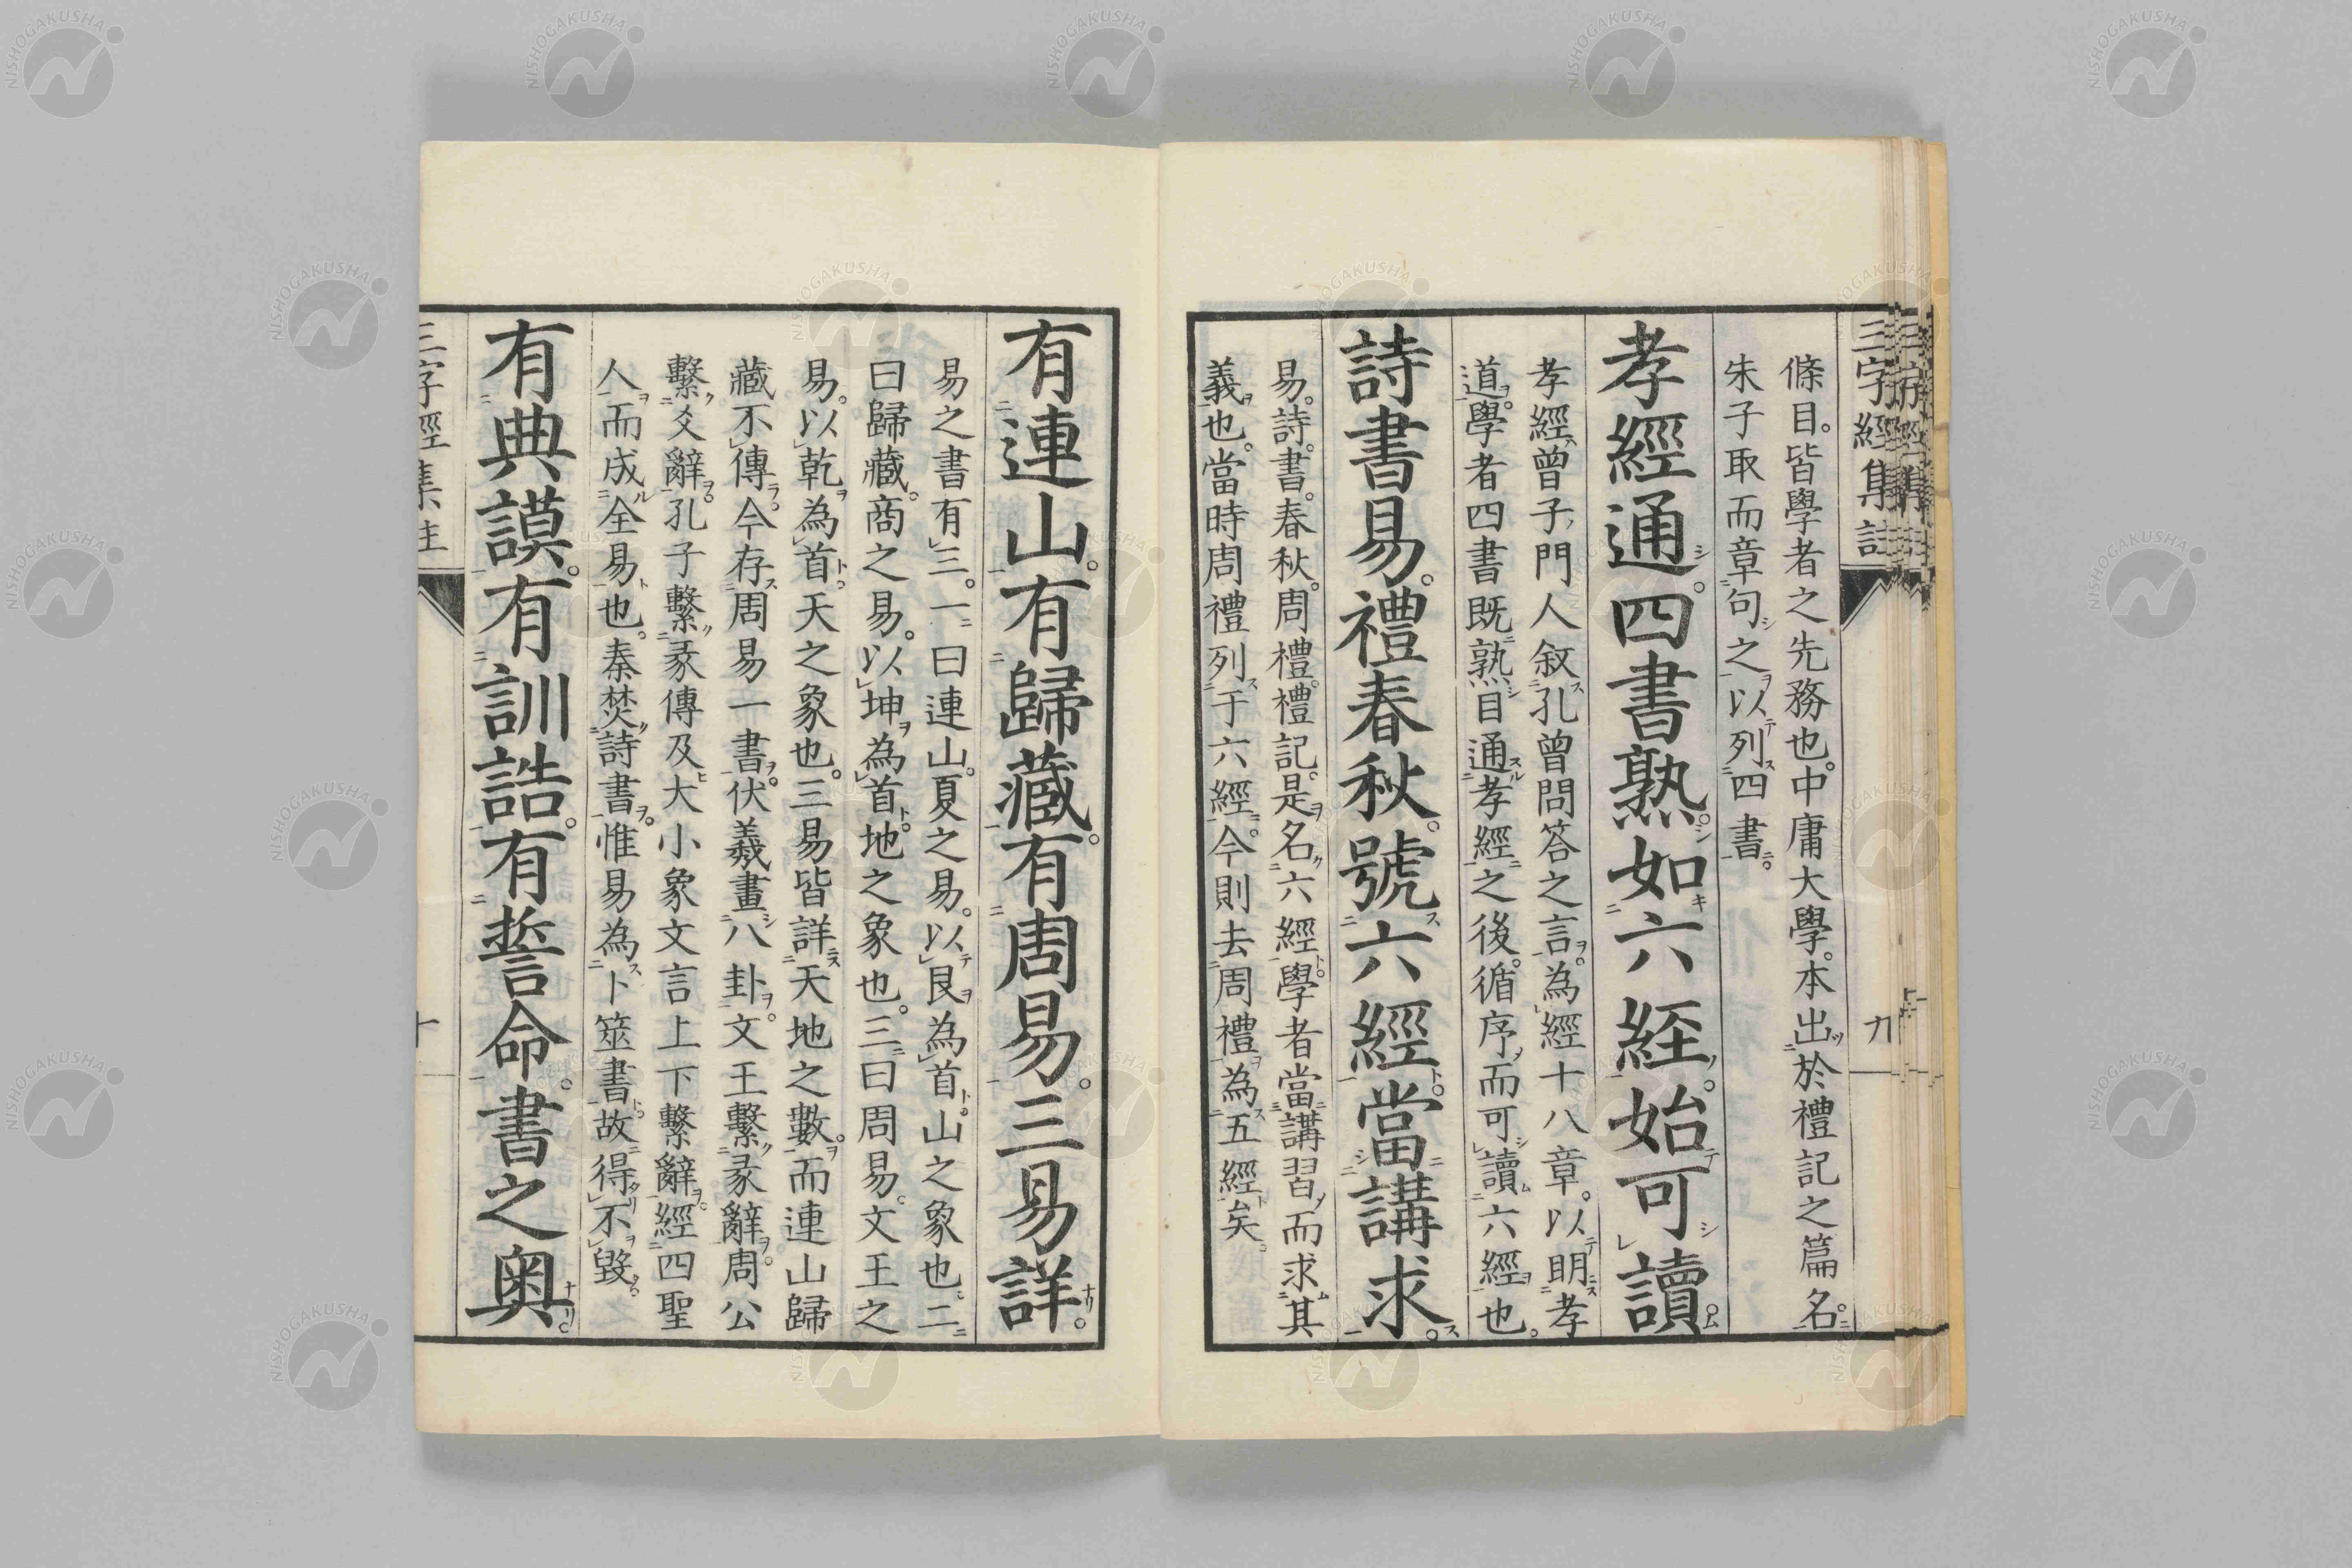 三字經集註
九
條目。皆學者之先務也。中庸大學。本出於禮記之篇名。
朱子取而章句之以列四書。
孝經通。四書熟。如六經。始可讀。
孝經曾子門人叙孔曾問答之言。為經十八章。以明孝
道。學者四書既熟。目通孝經之後。循序而可讀六經也。
詩書易。禮春秋。號六經。當講求。
易。詩。書。春秋。周禮。禮記。是名六經。學者當講習而求其
義也。當時周禮列于六經。今則去周禮為五經矣。
有連山。有歸藏。有周易。三易詳。
易之書有三。一曰連山。夏之易。以艮為首。山之象也。二
曰歸藏。商之易。以坤為首。地之象也。三曰周易。文王之
易。以乾為首。天之象也。三易皆詳天地之數。而連山歸
藏不傳。今存周易一書。伏羲畫八卦。文王繫彖辭。周公
繫爻辭。孔子繫彖傳及大小象文言上下繫辭。經四聖
人而成全易也。秦焚詩書。惟易為卜筮書。故得不毀。
有典謨。有訓誥。有誓命。書之奥。
三字經集註
十
NISHOGAKUSHA